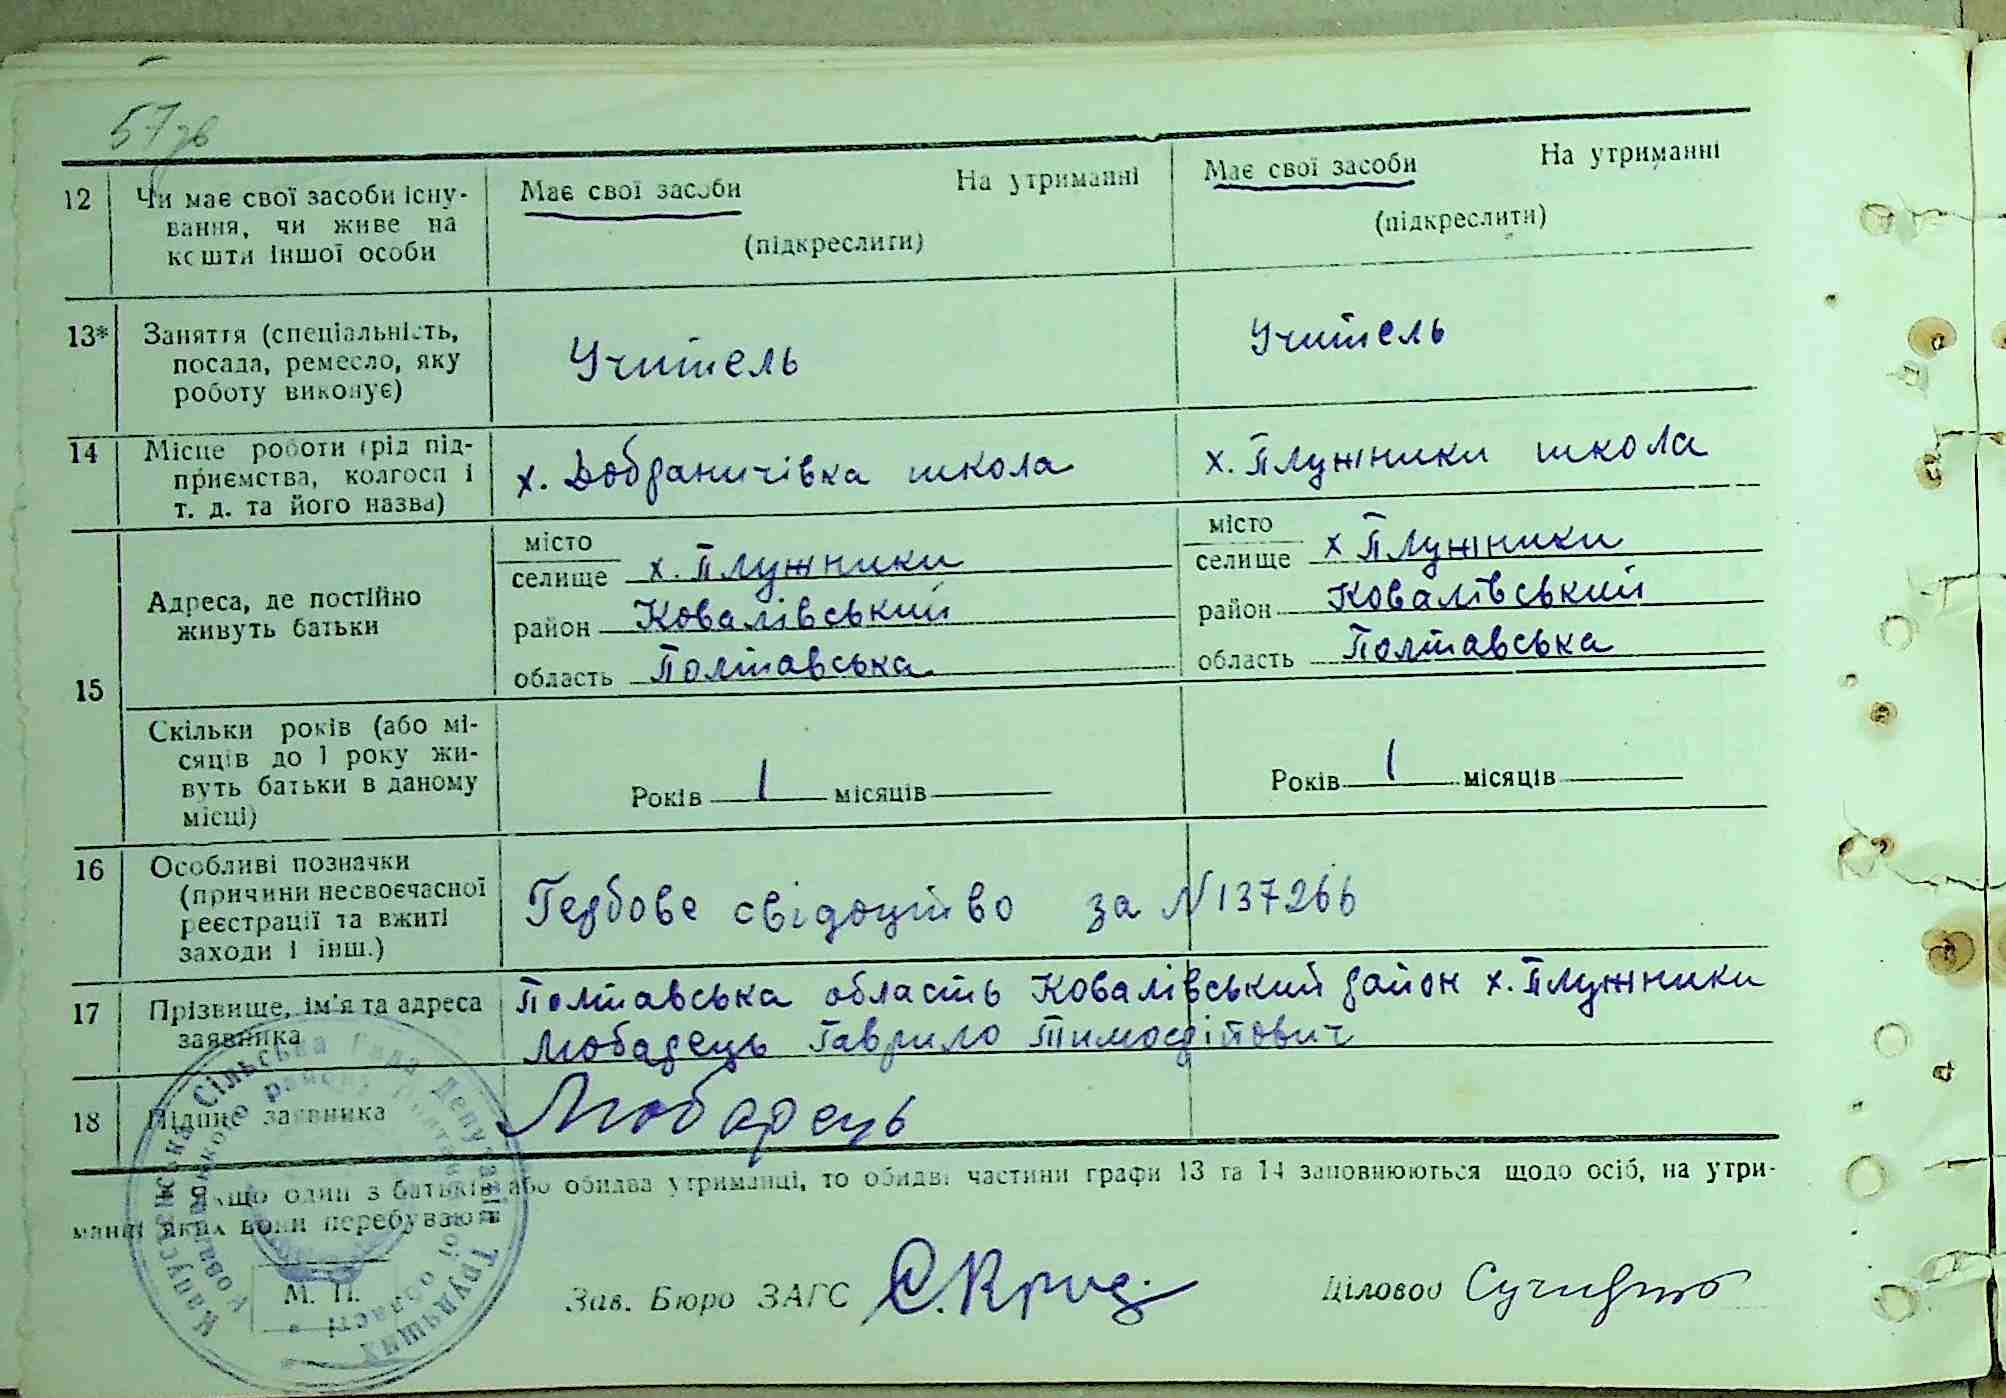 57зв
12 Чи має свої засоби існу-
вання, чи живе на
кошти іншої особи
Має свої засоби На утриманні
(підкреслити)
Має свої засоби На утриманні
(підкреслити)
13* Заняття (спеціальність,
посада, ремесло, яку
роботу виконує)
Учитель
Учитель
14 Місце роботи (рід під-
приємства, колгосп і
т. д. та його назва)
х. Добраничівка школа
х. Плужники школа
15
Адреса, де постійно
живуть батьки
місто
селище х. Плужники
район Ковалівський
область Полтавська
місто
селище х Плужники
район Ковалівський
область Полтавська
Скільки років (або мі-
сяців до 1 року жи-
вуть батьки в даному
місці)
Років 1 місяців
Років 1 місяців
16 Особливі позначки
(причини несвоєчасної
реєстрації та вжиті
заходи і інш.)
Гербове свідоцтво за N 137266
17 Прізвище, ім'я та адреса
заявника
Полтавська область Ковалівський район х. Плужники
Любарець Гаврило Тимофійович
18 Підпис заявника
Любарець
Якщо один з батьків або обидва утриманці, то обидві частини графи 13 та 14 заповнюються щодо осіб, на утри-
манні яких вони перебувають
М. П.
Зав. Бюро ЗАГС
Діловод
Сільська Рада Депутатів Трудящих
Ковалівського району Полтавської області